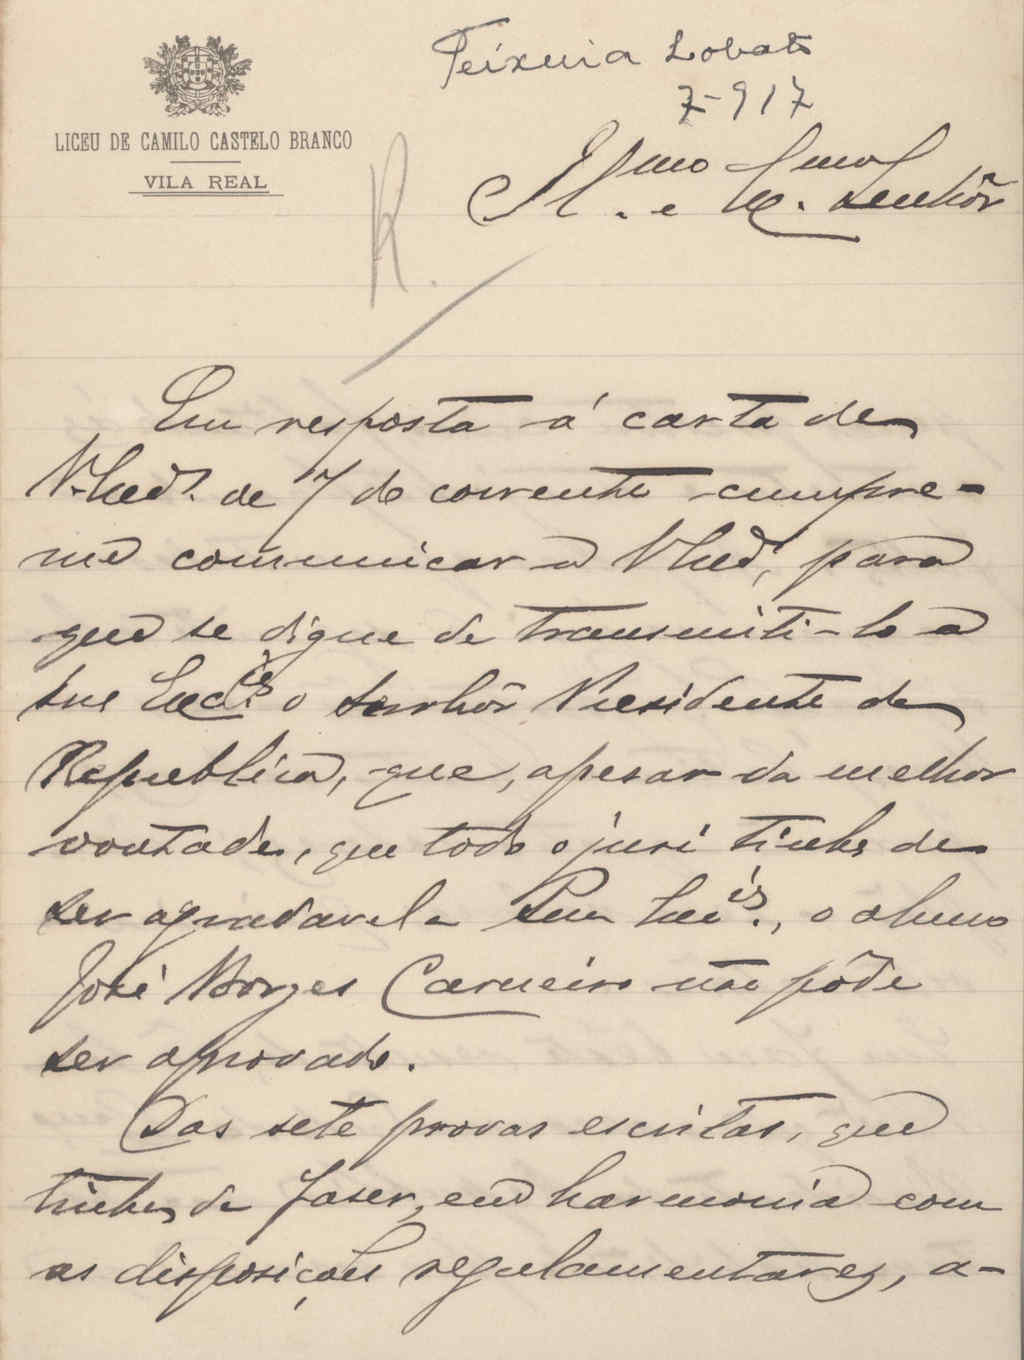 Teixeira Lobato
7-917
LICEU DE CAMILO CASTELO BRANCO
VILA REAL
R.
Il.mo e Ex.mo Senhôr
Em resposta á carta de
V. Ex.cia de 7 do corrente cumpre-
me comunicar a V. Ex.cia, para
que se digne de transmiti-lo a
Sua Exc.ia o Senhôr Presidente da
Republica, que, apesar da melhor
vontade, que todo o juri tinha de
ser agradavel a Sua Exc.ia, o aluno
José Borges Carneiro não pôde
ser aprovado.
Das sete provas escritas, que
tinha de faser, em harmonia com
as disposições regulamentares, a-